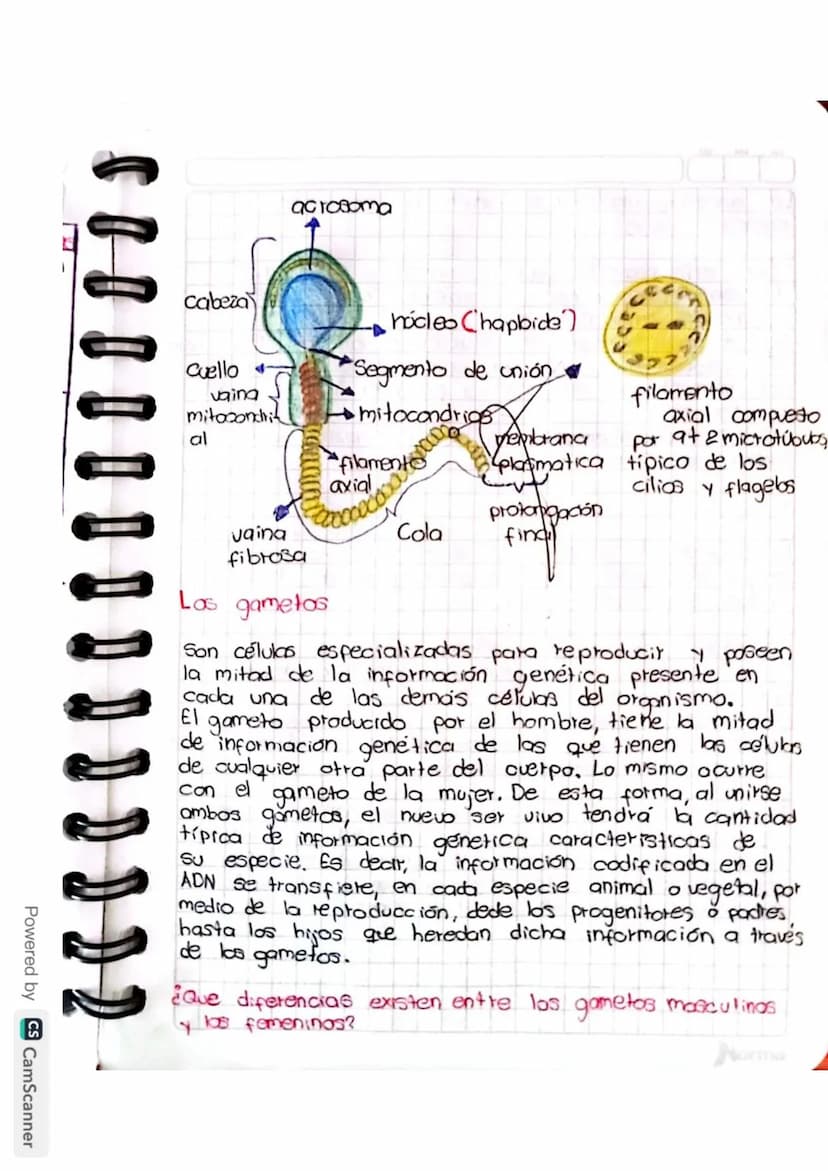 acrosoma
cabeza
núcleo ("haploide")
cuello
Segmento de unión
vaina
mitocondri
al
mitocondrias
filamento
axial
membrana
plasmatica
prolongación
final
Cola
vaina
fibrosa
filamento
axial compuesto
por 9+2 microtúbulos,
típico de los
cilios y flagelos
Los gametos
Son células especializadas para reproducir y poseen
la mitad de la información genética presente en
cada una de las demás células del organismo.
El gameto producido por el hombre, tiene la mitad
de información genética de las que tienen las células
de cualquier otra parte del cuerpo. Lo mismo ocurre
con el gameto de la mujer. De esta forma, al unirse
ambos gametos, el nuevo ser vivo tendrá la cantidad
típica de información génetica características de
su especie. Es decir, la información codificada en el
ADN se transfiere, en cada especie animal o vegetal, por
medio de la reproducción, dede los progenitores o padres,
hasta los hijos que heredan dicha información a través
de los gametos.
¿Que diferencias existen entre los gametos masculinos
y los femeninos?
Norma
Powered by CS CamScanner